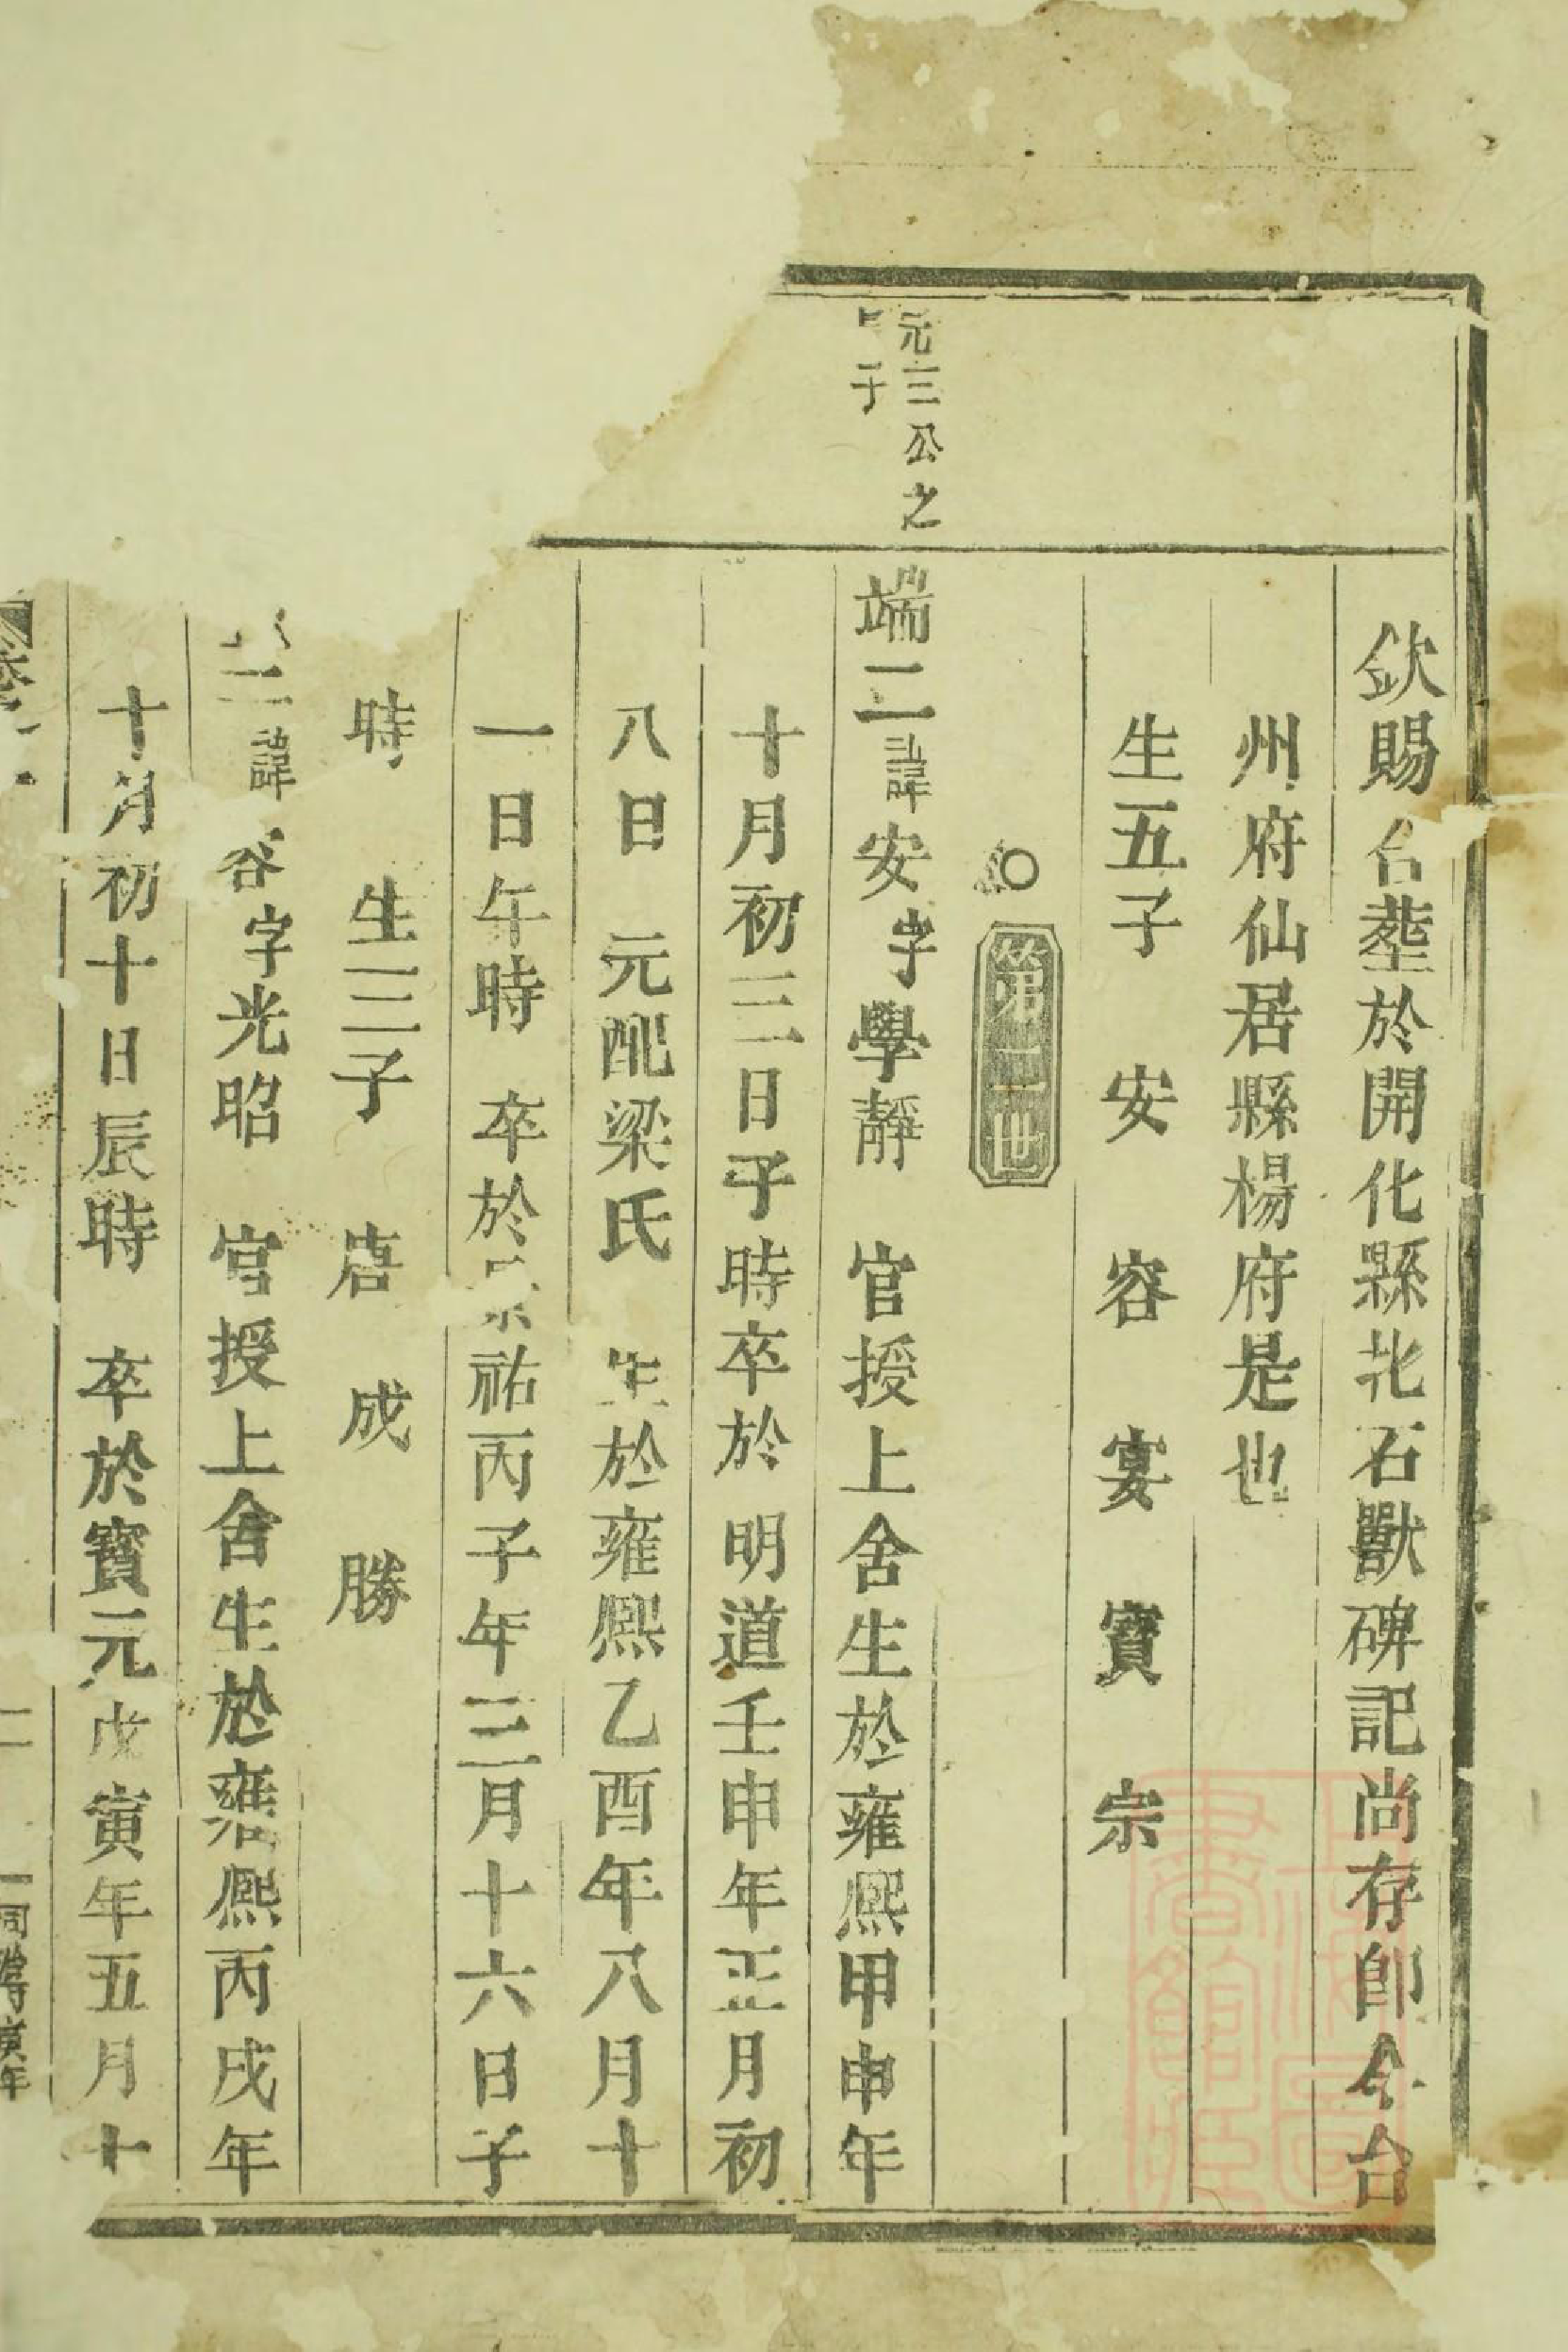 欽賜名塟於開化縣北石獸碑記尚存即今台
州府仙居縣楊府是也
生五子 安 容 宴 寳 宗
第二世
元三公之
子
端二諱安字學靜 官授上舍生於雍熙甲申年
十月初三日子時卒於明道壬申年正月初
八日 元配梁氏 生於雍熙乙酉年八月十
一日午時 卒於景祐丙子年三月十六日子
時 生三子 唐 成 勝
二諱容字光昭 官授上舍生於雍熙丙戌年
十月初十日辰時 卒於寳元戊寅年五月十